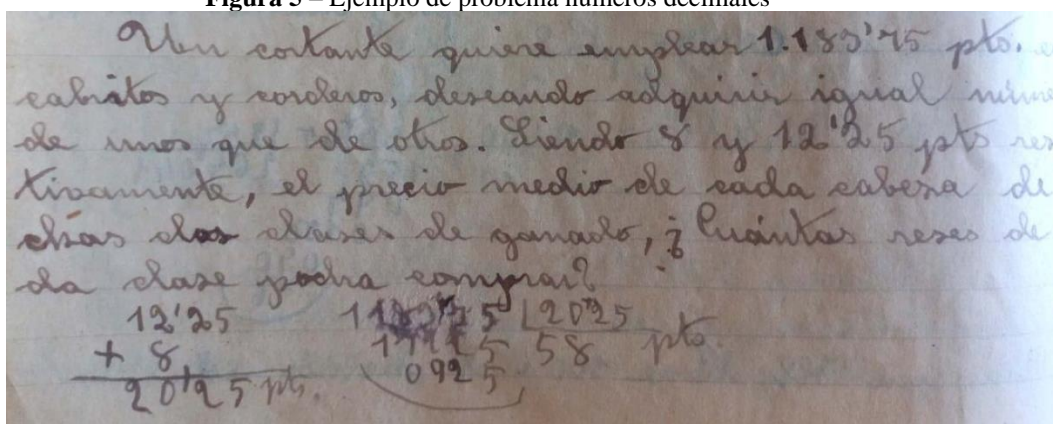 Figura 5 – Ejemplo de problema números decimales
Un cortante quiere emplear 1.183'75 pts.
cabritos y corderos, deseando adquirir igual núme
de unos que de otros. Siendo 8 y 12'25 pts res
tivamente, el precio medio de cada cabeza de
chas dos clases de ganado, ¿Cuántas reses de
da clase podra comprar?
12'25
+ 8
20'25 pts.
1183'75 20'25
5 58 pts.
0925